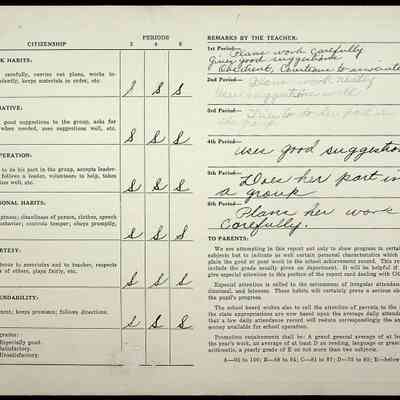 PERIODS
CITIZENSHIP
2 4 6
K HABITS:
carefully, carries out plans, works in-
dently, keeps materials in order, etc.
S S
ATIVE:
good suggestions to the group, asks for
when needed, uses suggestions well, etc.
S S S
PERATION:
to do his part in the group, accepts leader-
follows a leader, volunteers to help, takes
ism well, etc.
S S S
SONAL HABITS:
posture; cleanliness of person, clothes, speech
behavior; controls temper; obeys promptly,
S S S
RTESY:
ourteous to associates and to teacher, respects
s of others, plays fairly, etc.
S S S
ENDABILITY:
ment; keeps promises; follows directions.
S S S
grades:
Especially good.
Satisfactory.
Unsatisfactory.
REMARKS BY THE TEACHER:
1st Period—
Plans work Carefully
Gives good suggestions
Obedient, Courteous to associates
2nd Period—
Plans work neatly
Uses suggestions well
3rd Period—
Tries to do her part in
the group
4th Period—
Uses good suggestion
5th Period—
Does her part in
a group
6th Period—
Plans her work
Carefully.
TO PARENTS:
We are attempting in this report not only to show progress in certain
subjects but to include as well certain personal characteristics which
plain the good or poor work in the school achievement record. This re
include the grade usually given on deportment. It will be helpful if
give special attention to this portion of the report card dealing with CI
Especial attention is called to the seriousness of irregular attendance
dismissal, and lateness. These habits will certainly prove a serious
the pupil's progress.
The school board wishes also to call the attention of parents to the
the state appropriations are now based upon the average daily attend
that a low daily attendance record will reduce correspondingly the am
money available for school operation.
Promotion requirements shall be: A grand general average of at lea
the year's work, an average of at least D on reading, language or gramm
arithmetic, a yearly grade of E on not more than two subjects.
A—95 to 100; B—88 to 94; C—81 to 87; D—75 to 80; E—below